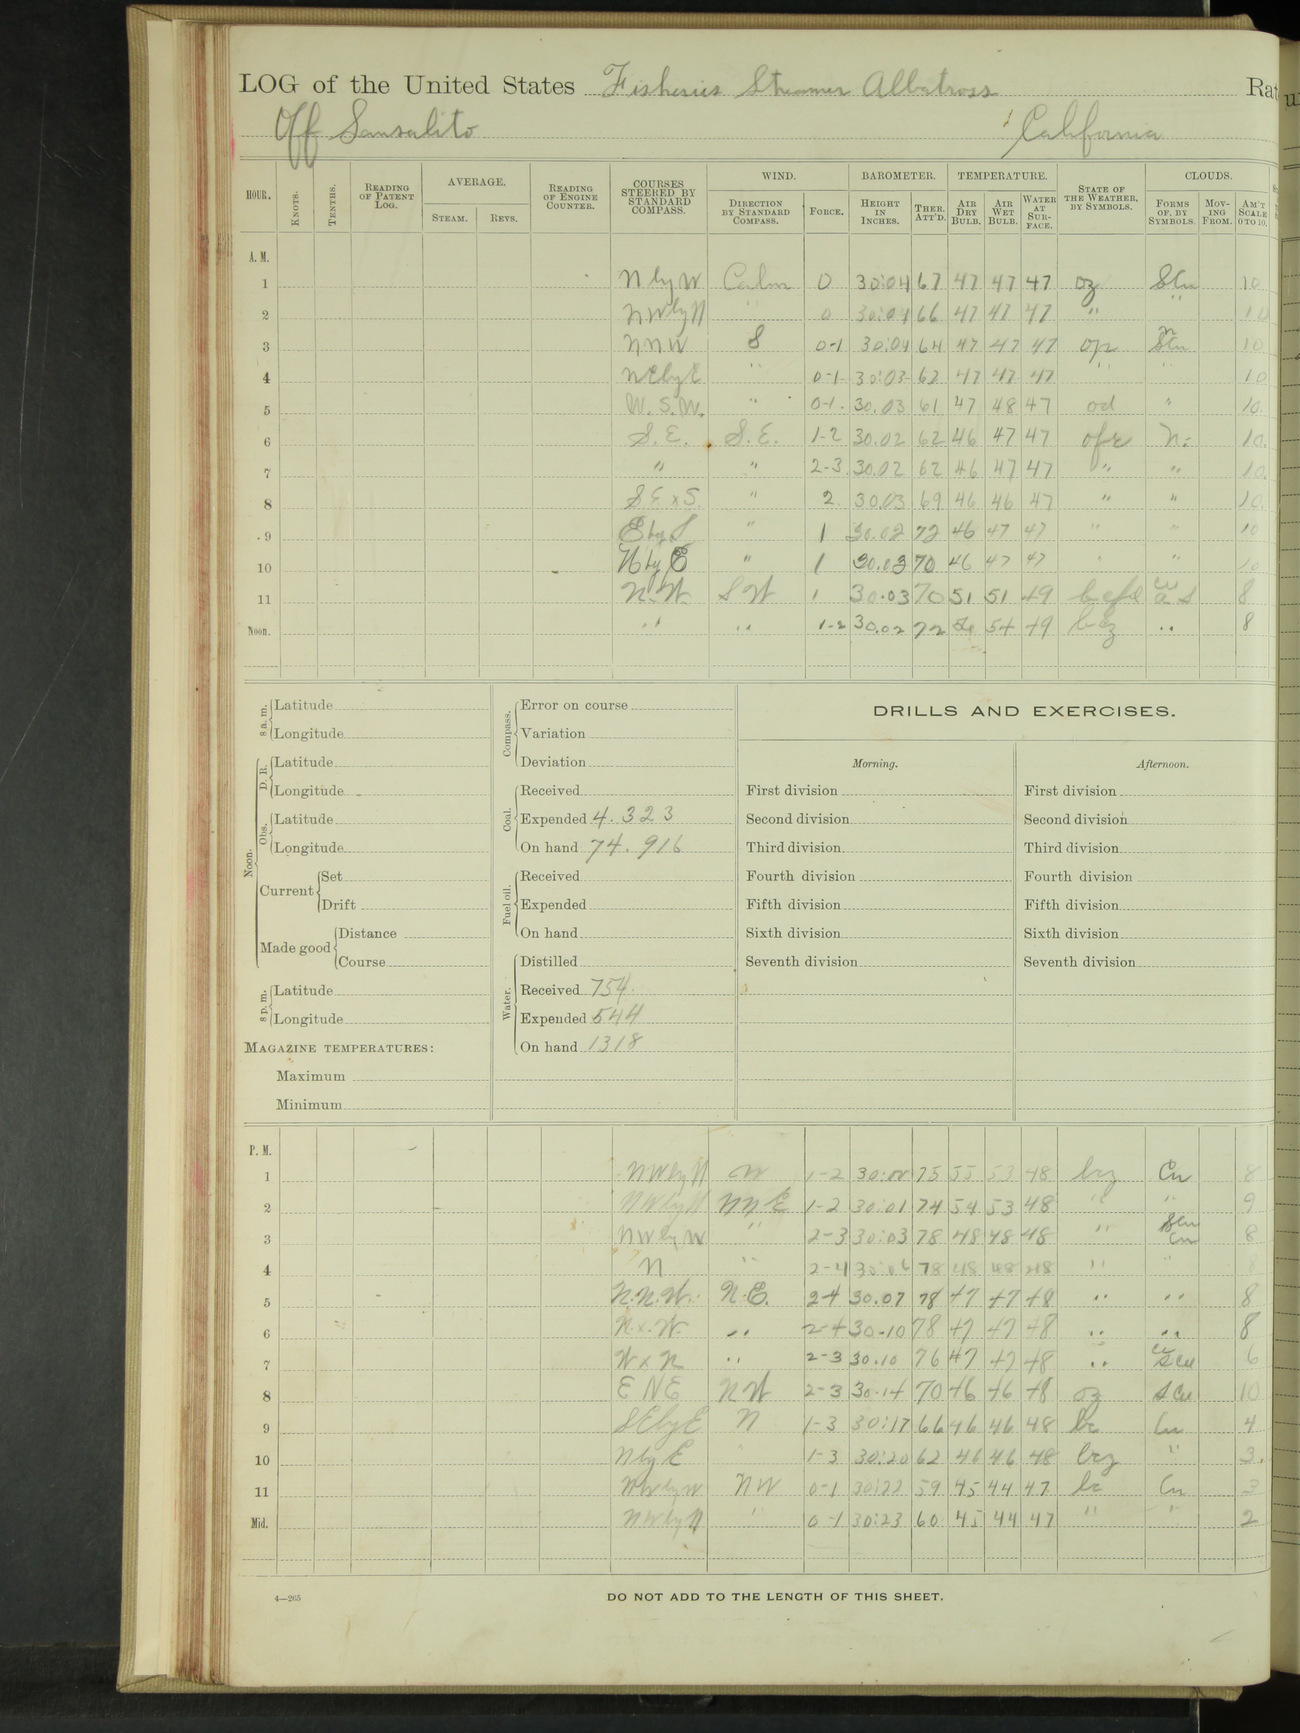 LOG of the United States Fisheries Steamer Albatross Rat
Off Sausalito California
HOUR. KNOTS. TENTHS. READING OF PATENT LOG. AVERAGE. STEAM. REVS. READING OF ENGINE COUNTER. COURSES STEERED BY STANDARD COMPASS. WIND. DIRECTION BY STANDARD COMPASS. FORCE. BAROMETER. HEIGHT IN INCHES. THER. ATT'D. TEMPERATURE. AIR DRY BULB. AIR WET BULB. WATER AT SURFACE. STATE OF THE WEATHER, BY SYMBOLS. CLOUDS. FORMS OF, BY SYMBOLS. MOVING FROM. AM'T SCALE 0 TO 10.
A. M.
1 N by W Calm 0 30:04 67 47 47 47 oz Stcu 10
2 NW by N " 0 30:04 66 47 47 47 " " 10
3 NNW S 0-1 30:04 64 47 47 47 op N Stcu 10
4 NE by E " 0-1 30:03 62 47 47 47 " " 10
5 W. S. W. " 0-1. 30.03 61 47 48 47 od " 10.
6 S. E. S. E. 1-2 30.02 62 46 47 47 N. 10.
7 " " 2-3 30.02 62 46 47 47 " " 10.
8 S E x S. " 2 30.03 69 46 46 47 " " 10.
9 E by S " 1 30.02 72 46 47 47 " " 10
10 N by E " 1 30.03 70 46 47 47 " " 10
11 N. W. S W 1 30.03 70 51 51 49 8
Noon. " " 1-2 30.02 72 54 49 bcz " 8
8 a. m. Latitude
Longitude
Noon. D. R. Latitude
Longitude
Obs. Latitude
Longitude
Current Set
Drift
Made good Distance
Course
8 p. m. Latitude
Longitude
MAGAZINE TEMPERATURES:
Maximum
Minimum
Compass. Error on course
Variation
Deviation
Coal. Received
Expended 4. 323
On hand 74. 916
Fuel oil. Received
Expended
On hand
Water. Distilled
Received 754.
Expended 544
On hand 1318
DRILLS AND EXERCISES.
Morning. Afternoon.
First division First division
Second division Second division
Third division Third division
Fourth division Fourth division
Fifth division Fifth division
Sixth division Sixth division
Seventh division Seventh division
P. M.
1 NW by N W 1-2 75 55 53 48 bcz Cu 8
2 NW by N NNE 1-2 30:01 74 54 53 48 " " 9
3 NW by W " 2-3 30:03 78 48 48 48 " Stcu Cu 8
4 N " 2-4 30:06 78 48 48 48 " " 8
5 N. N. W. N. E. 2-4 30.07 78 47 47 48 " " 8
6 N. x. W. " 2-4 30.10 78 47 47 48 " " 8
7 W x N " 2-3 30.10 76 47 47 48 " S Cu 6
8 E N E N W 2-3 30.14 70 46 46 48 oz S Cu 10
9 SE by E N 1-3 30:17 66 46 46 48 bc Cu 4
10 N by E " 1-3 30:20 62 46 46 48 bcz " 3.
11 NW by W NW 0-1 30:22 59 45 44 47 bc Cu 3
Mid. NW by N " 0-1 30:23 60 45 44 47 " " 2
4—265
DO NOT ADD TO THE LENGTH OF THIS SHEET.